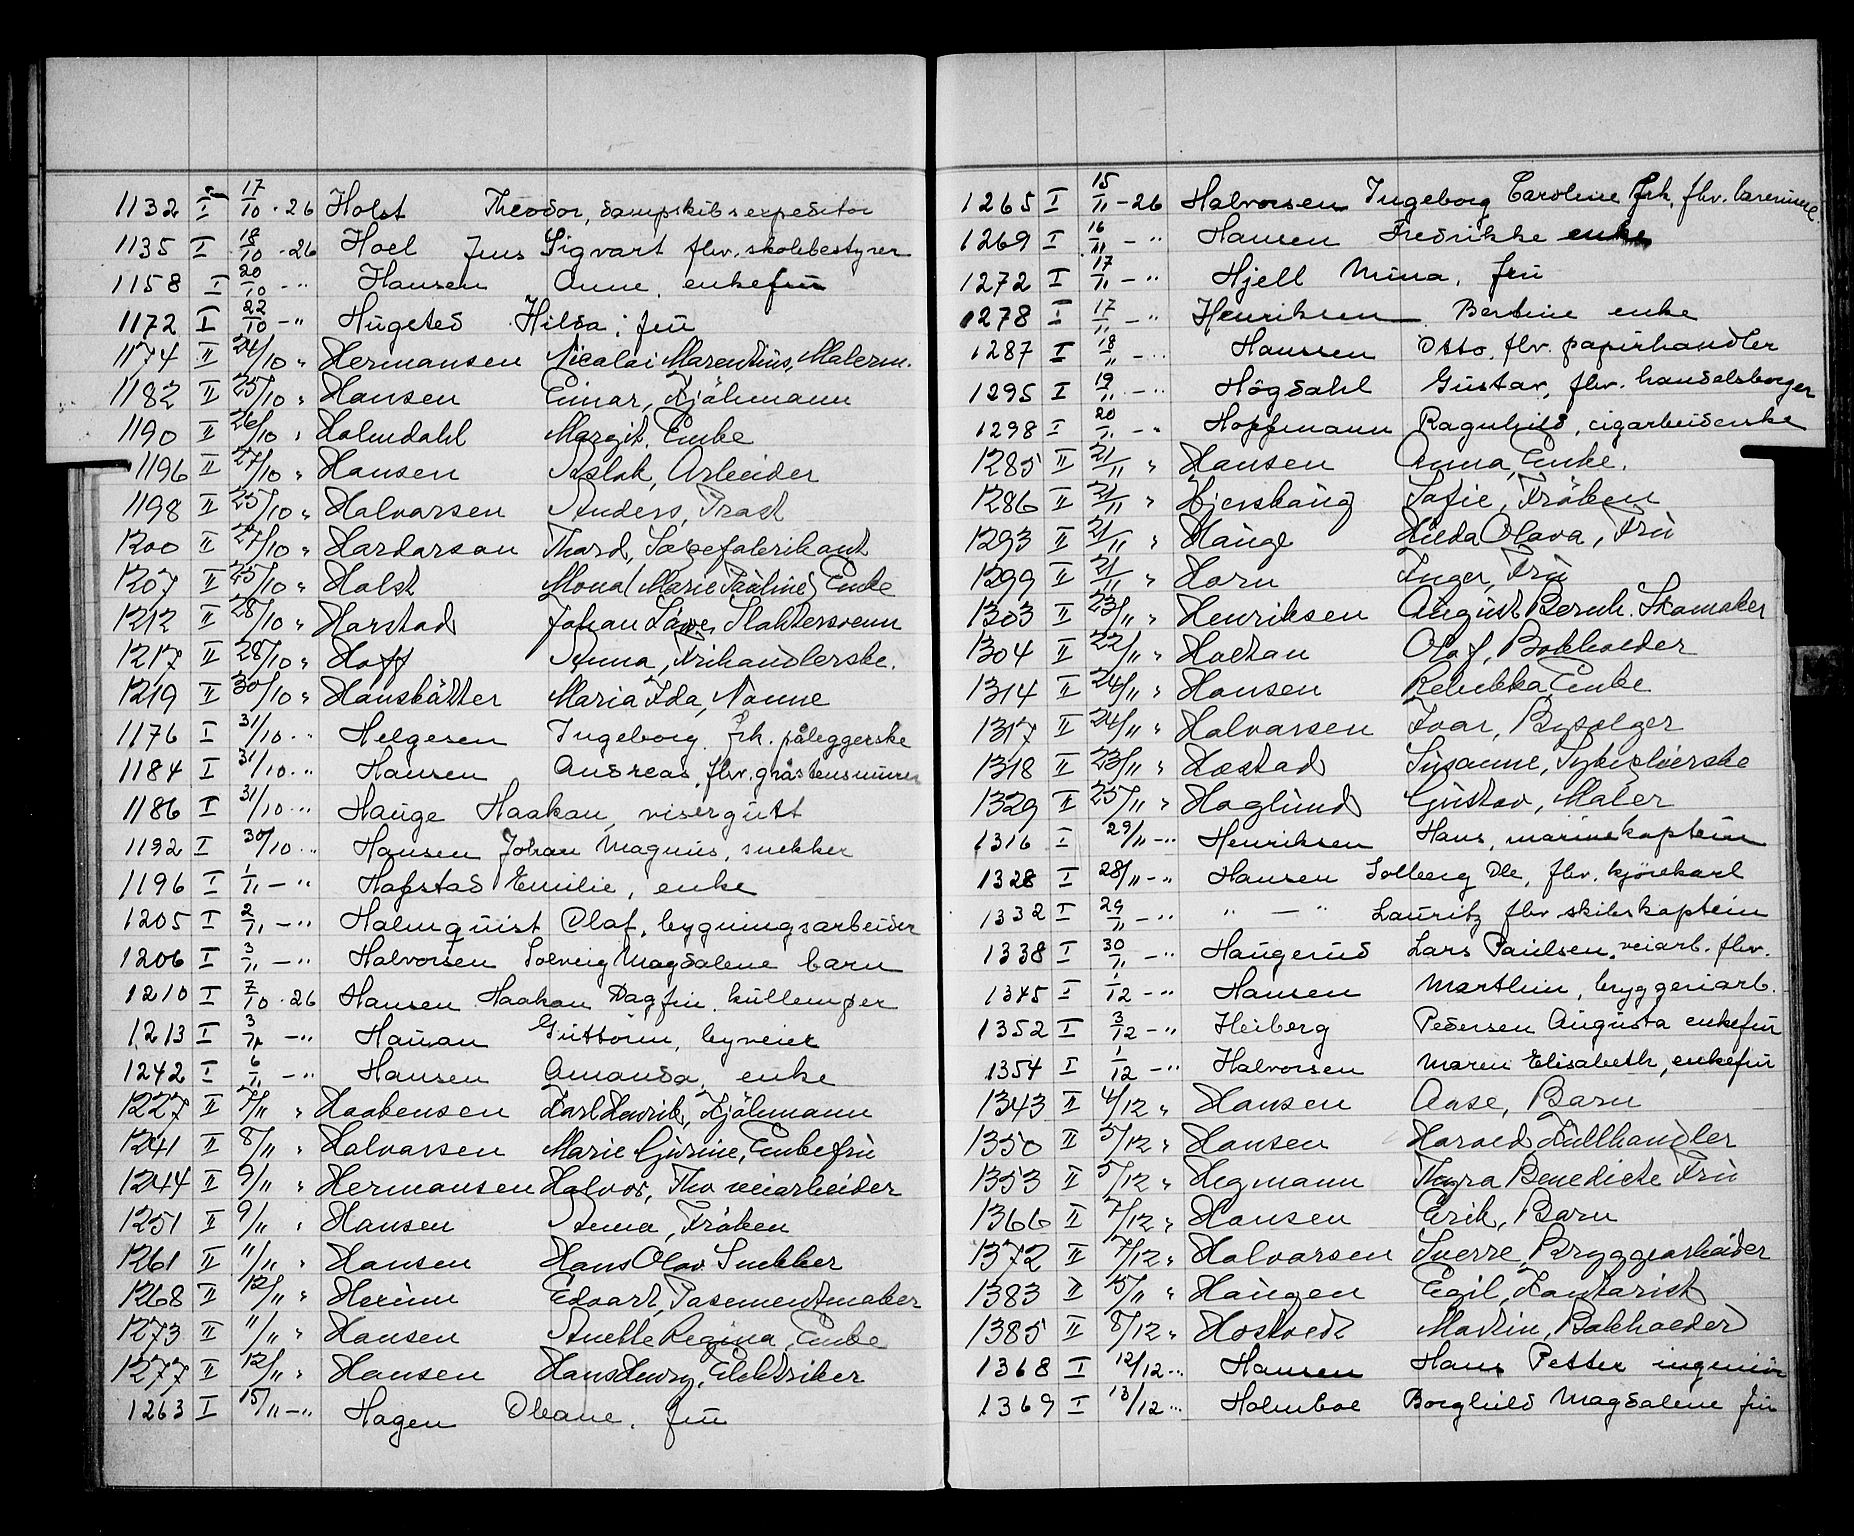 1132 I 17/10 · 26 Holst Theodor, dampskibsexpeditor
1135 I 18/10 · 26 Hoel Jens Sigvart fhv. skolebestyrer
1158 I 20/10 - " Hansen Anne, enkefru
1172 I 22/10 - " Hugsted Hilda, fru
1174 II 24/10 " Hermansen Nicolai Marentius, Malerm.
1182 II 25/10 " Hansen Einar, Kjöbmann
1190 II 26/10 " Holmdahl Margit, Enke
1196 II 27/10 " Hansen Aslak, Arbeider
1198 II 25/10 " Halvorsen Anders, Prost
1200 II 27/10 " Hardarson Thord, Sæpefabrikant
1207 II 25/10 " Holst Mona (Marie Pauline) Enke
1212 II 28/10 " Harstad Johan Laws, Slaktersvenn
1217 II 28/10 " Hoff Anna, Frihandlerske.
1219 II 30/10 " Hansbätter Maria Ida, Nonne
1176 I 31/10 - " Helgesen Ingeborg frk. påleggerske
1184 I 31/10 - " Hansen Andreas, fhv. gråstensmurer
1186 I 31/10 - " Hauge Haakon, visergutt
1192 I 30/10 - " Hansen Johan Magnus, snekker
1196 I 1/11 - " Hafstad Emilie, enke
1205 I 2/11 - " Holmquist Olaf, bygningsarbeider
1206 I 3/11 - " Halvorsen Solveig Magdalene barn
1210 I 7/10 · 26 Hansen Haakon Dagfin. kullemper
1213 I 3/11 - " Hauan Guttorm, byveier
1242 I 6/11 - " Hansen Amanda, enke
1227 II 7/11 " Haakensen Karl Henrik, Kjöbmann
1241 II 8/11 " Halvorsen Marie Gurine, Enkefru
1244 II 9/11 " Hermansen Halvor, Fhv veiarbeider
1251 II 9/11 " Hansen Anna, Fröken
1261 II 11/11 " Hansen Hans Olav Snekker
1268 II 12/11 " Heximn Edvart, Pasementmaker
1273 II 11/11 " Hansen Anette Regina, Enke
1277 II 12/11 " Hansen Hans Henry, Elektriker
1263 I 15/11 - " Hagen Oleane, fru
1265 I 15/11 - 26 Halvorsen Ingeborg Caroline frk, fhv. lærerinne
1269 I 16/11 - " Hansen Fredrikke enke
1272 I 17/11 - " Hjell Mina, fru
1278 I 17/11 - " Henriksen Bertine enke
1287 I 18/11 - " Hanssen Otto, fhv. papirhandler
1295 I 19/11 - " Högdahl Gustav, fhv. handelsborger
1298 I 20/11 - " Hoffmann Ragnhild, cigarbeiderske
1285 II 21/11 " Hansen Anna, Enke.
1286 II 21/11 " Hjershaug Sofie, Fröken
1293 II 21/11 " Hauge Hilda Olava, Fru
1299 II 21/11 " Horn Inger, Fru
1303 II 23/11 " Henriksen August Bernh. Skomaker
1304 II 22/11 " Holtan Olaf, Bokholder
1314 II 24/11 " Hansen Rebekka Enke
1317 II 24/11 " Halvorsen Ivar, Byselger
1318 II 23/11 " Hostad Susanne, Sykepleierske
1329 II 25/11 " Haglund Gustav, Maler
1316 I 29/11 - " Henriksen Hans, marinekaptein
1328 I 28/11 - " Hansen Solberg Ole, fhv. kjörekarl
1332 I 29/11 - " " — " Lauritz fhv skibskaptein
1338 I 30/11 - " Haugerud Lars Paulsen, veiarb. fhv.
1345 I 1/12 - " Hansen Marthin, bryggeriarb.
1352 I 3/12 - " Heiberg Pedersen Augusta enkefru
1354 I 1/12 - " Halvorsen Maren Elisabeth, enkefru
1343 II 4/12 " Hansen Aase, Barn
1350 II 5/12 " Hansen Harald, Kullhandler
1353 II 5/12 " Hegmann Thyra Benedicte Fru
1366 II 7/12 " Hansen Erik, Barn
1372 II 7/12 " Halvorsen Sverre, Bryggearbeider
1383 II 15/11 " Haugen Egil, Kontorist
1385 II 8/12 " Hostvedt Martin, Bokholder
1368 I 12/12 - " Hansen Hans Petter ingeniör
1369 I 13/12 - " Holmboe Borghild Magdalene fru